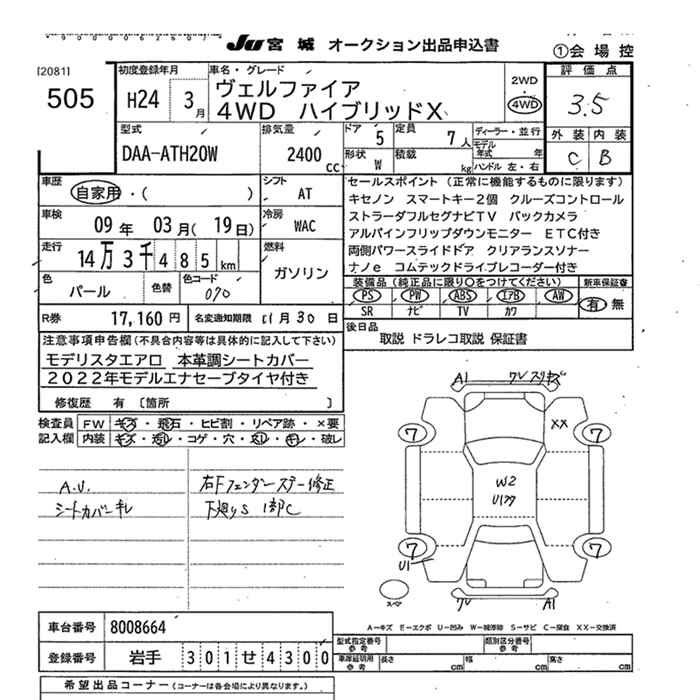 JU 宮城 オークション出品申込書
①会場控
[2081]
505
初度登録年月
H24 3月
車名・グレード
ヴェルファイア
4WD ハイブリッドX
2WD
・
4WD
評価点
3.5
外装 内装
C B
型式
DAA-ATH20W
排気量
2400 cc
ドア 5
定員 7人
形状 W
積載 kg
ディーラー・並行
モデル年式 年
ハンドル 左・右
車歴
自家用・( )
シフト
AT
車検
09年 03月(19日)
冷房
WAC
走行
14万3千485km
燃料
ガソリン
色
パール
色替
色コード
070
R券 17,160円
名変通知期限 11月30日
セールスポイント (正常に機能するものに限ります)
キセノン スマートキー2個 クルーズコントロール
ストラーダフルセグナビTV バックカメラ
アルパインフリップダウンモニター ETC付き
両側パワースライドドア クリアランスソナー
ナノe コムテックドライブレコーダー付き
装備品(純正品に限り○をつけてください)
PS PW ABS エアB AW
SR ナビ TV カワ
新車保証書
有 無
後日品
取説 ドラレコ取説 保証書
注意事項申告欄(不具合内容等は具体的に記入して下さい)
モデリスタエアロ 本革調シートカバー
2022年モデルエナセーブタイヤ付き
修復歴 有 〔箇所 〕
検査員記入欄
FW キズ・飛石・ヒビ割・リペア跡・×要
内装 キズ・汚レ・コゲ・穴・スレ・キレ・破レ
A.U.
シートカバーキレ
右Fフェンダーステー修正
下廻りS 1部C
A1 ワレスリキズ
XX
7 7
W2
U1ワク
7 7
U1
スペア
ワレ A1
A-キズ E-エクボ U-凹み W-補修跡 S-サビ C-腐食 XX-交換済
車台番号 8008664
登録番号 岩手 301せ4300
型式指定番号
参考
類別区分番号
参考
車庫証明用
参考
長さ cm 幅 cm 高さ cm
希望出品コーナー(コーナーは各会場により異なります。)